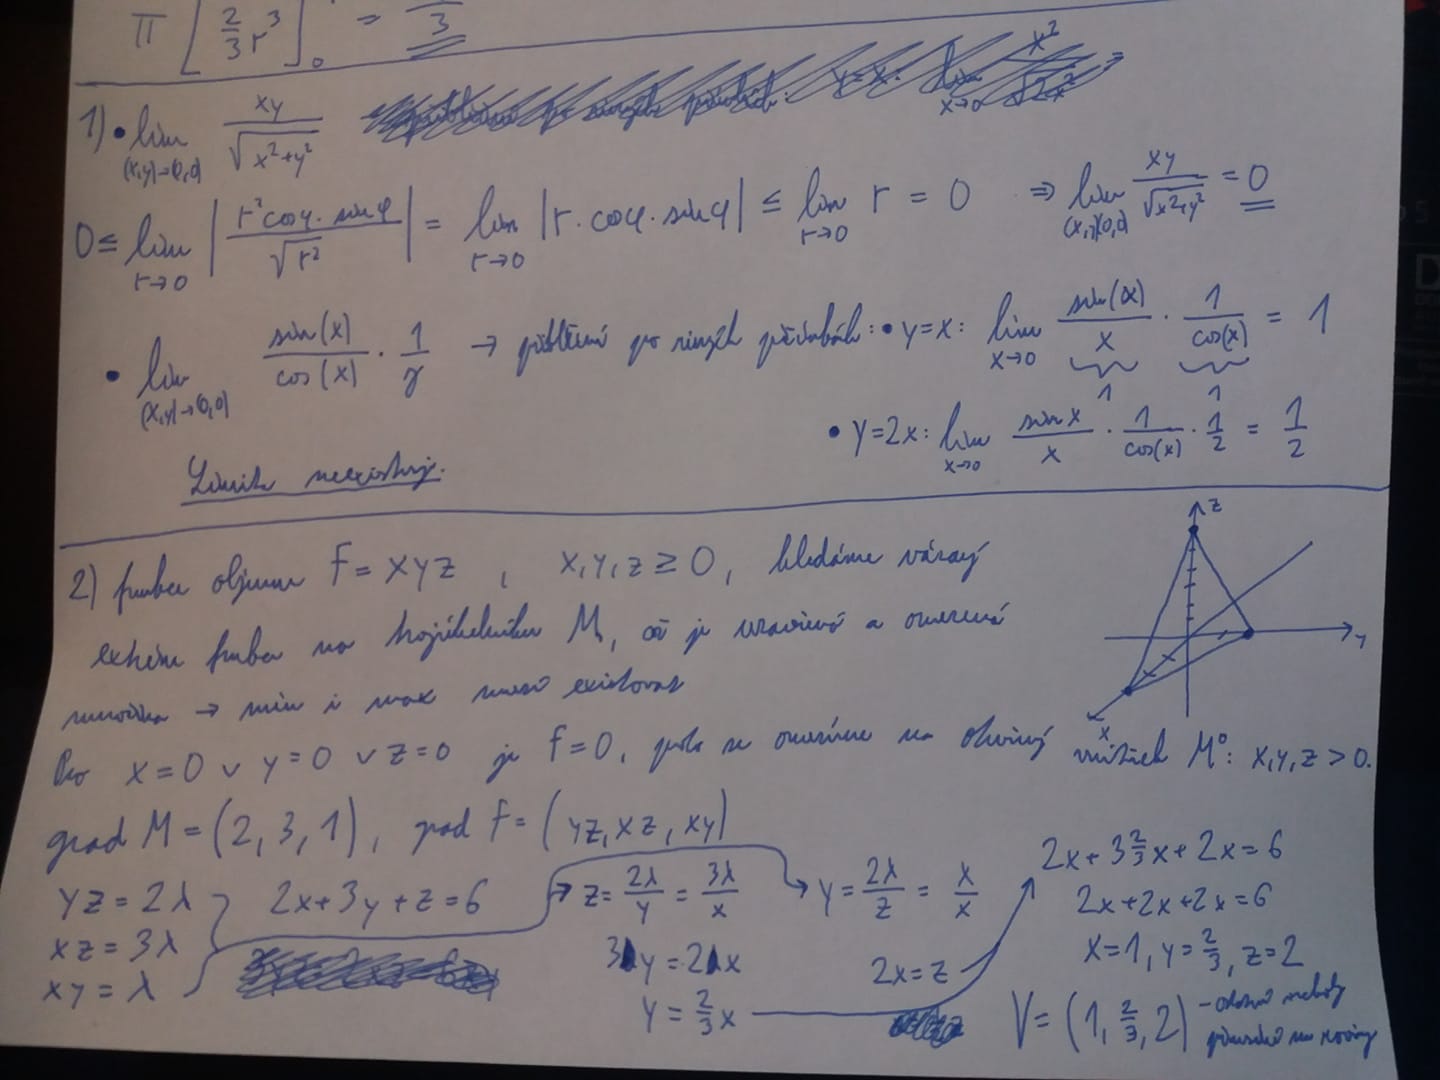 π [ 2/3 r³ ]₀ = /3
1) • lim (x,y)→(0,0) xy/√(x²+y²)
0 ≤ lim r→0 | r²cosφ · sinφ / √r² | = lim r→0 | r · cosφ · sinφ | ≤ lim r→0 r = 0 ⇒ lim (x,y)→(0,0) xy/√(x²+y²) = 0
• lim (x,y)→(0,0) sin(x)/cos(x) · 1/y → přiblížení po různých přímkách: • y=x: lim x→0 sin(x)/x · 1/cos(x) = 1
1 1
• y=2x: lim x→0 sin x/x · 1/cos(x) · 1/2 = 1/2
Limita neexistuje.
2) funkce objemu f = xyz , x,y,z ≥ 0, hledáme vázaný
extrém funkce na trojúhelníku M, což je uzavřená a omezená
množina → min i max musí existovat
z
y
x
Pro x=0 ∨ y=0 ∨ z=0 je f=0, proto se omezíme na otevřený vnitřek M°: x,y,z > 0.
grad M = (2, 3, 1), grad f = (yz, xz, xy)
yz = 2λ
xz = 3λ
xy = λ
2x+3y+z=6
z = 2λ/y = 3λ/x
3λy = 2λx
y = 2/3 x
y = 2λ/z = λ/x
2x = z
2x + 3 2/3 x + 2x = 6
2x+2x+2x=6
x=1, y=2/3, z=2
V = (1, 2/3, 2) –